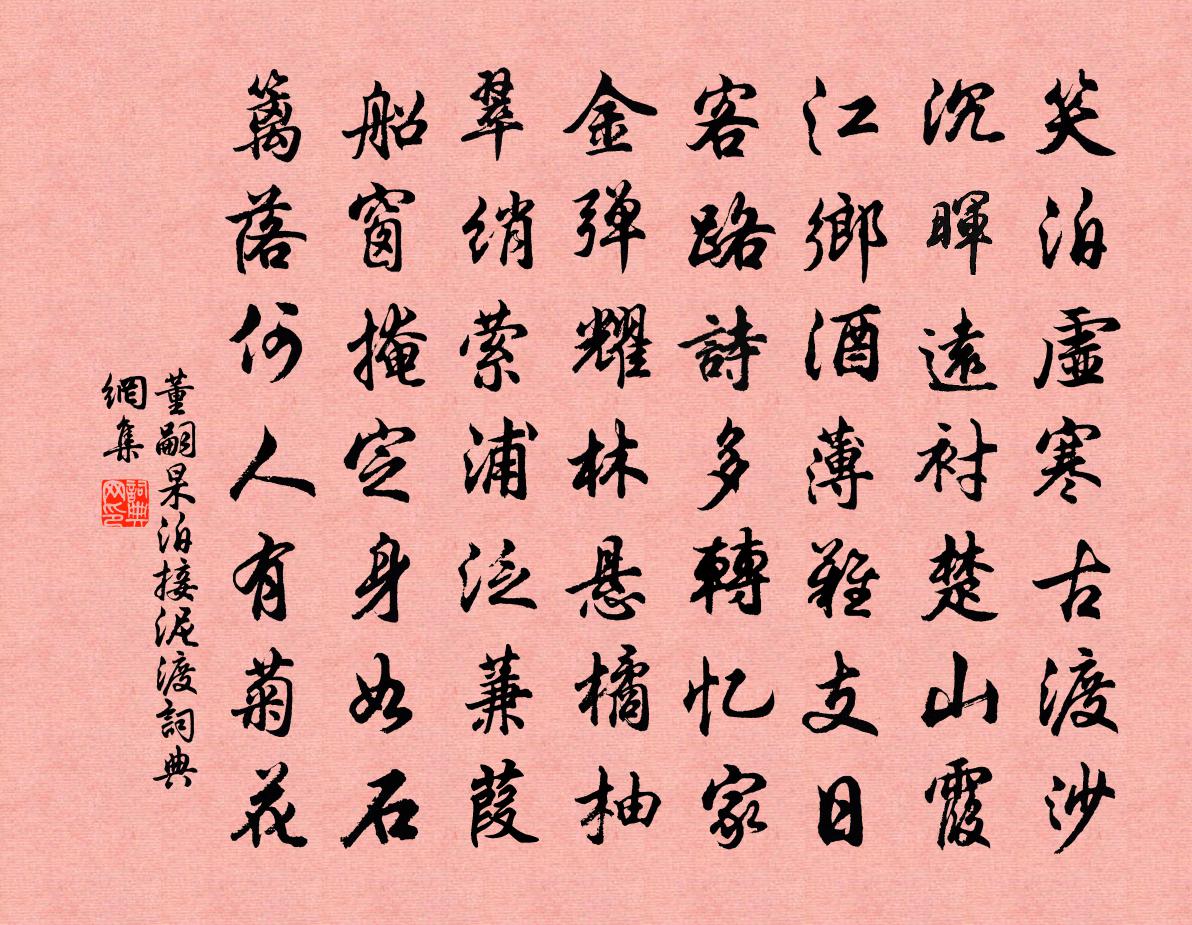 笑泊虛寒古渡沙
沉暉遠襯楚山霞
江鄉酒薄難支日
客路詩多轉忆家
金弹耀林悬橘柚
翠綃縈浦泛蒹葭
船窗掩定身如石
籬落何人有菊花
董嗣杲泊接泥渡詞典
網集
詞典
网印